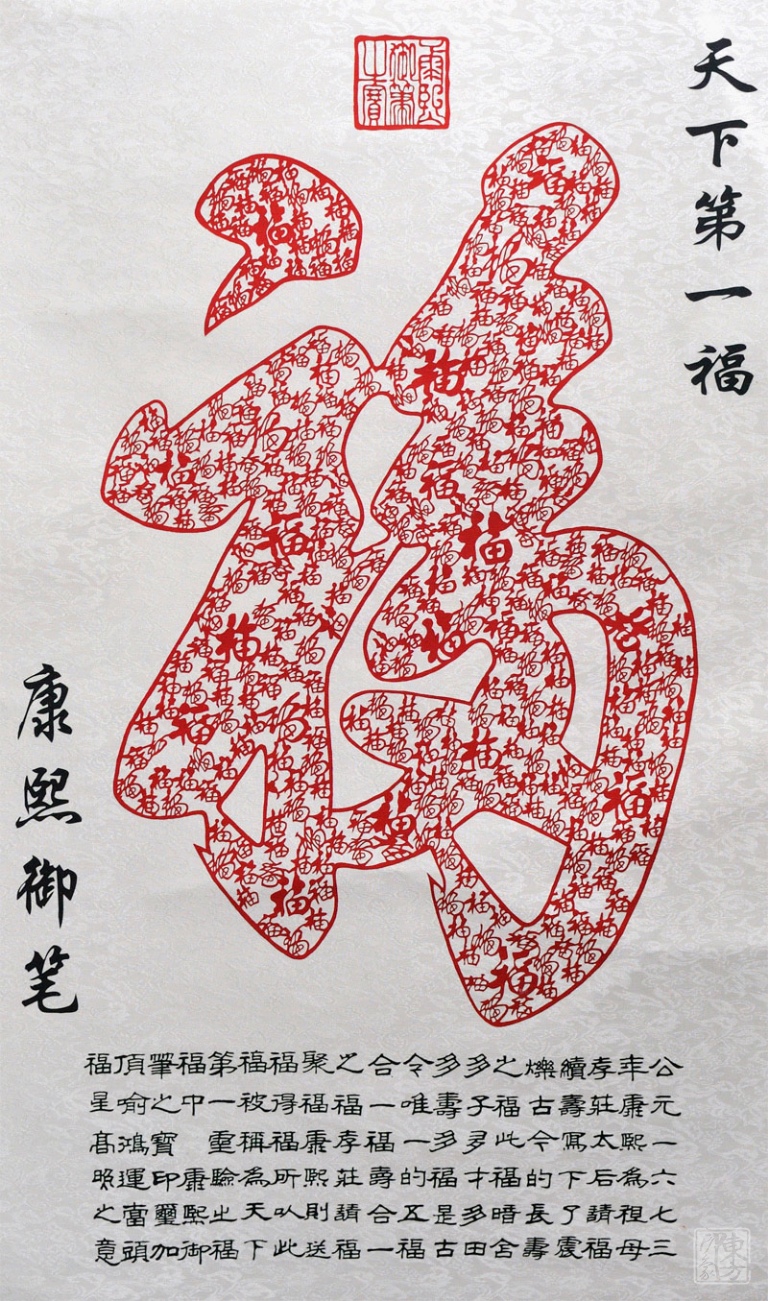 康熙御筆之寶
天下第一福
福
康熙御笔
公元一六七三
年康熙為祖母
孝莊太后請福
續壽寫下了震
爍古今的長壽
之福此福暗含
多子多才多田
多壽多福是古
令唯一的五福
合一福壽合一
之福孝莊請福
聚福康熙則送
福得福所以此
福被稱為天下
第一重福
福中康熙御
筆之寶印璽加
頂喻鴻運當頭
福呈高照之意
東方